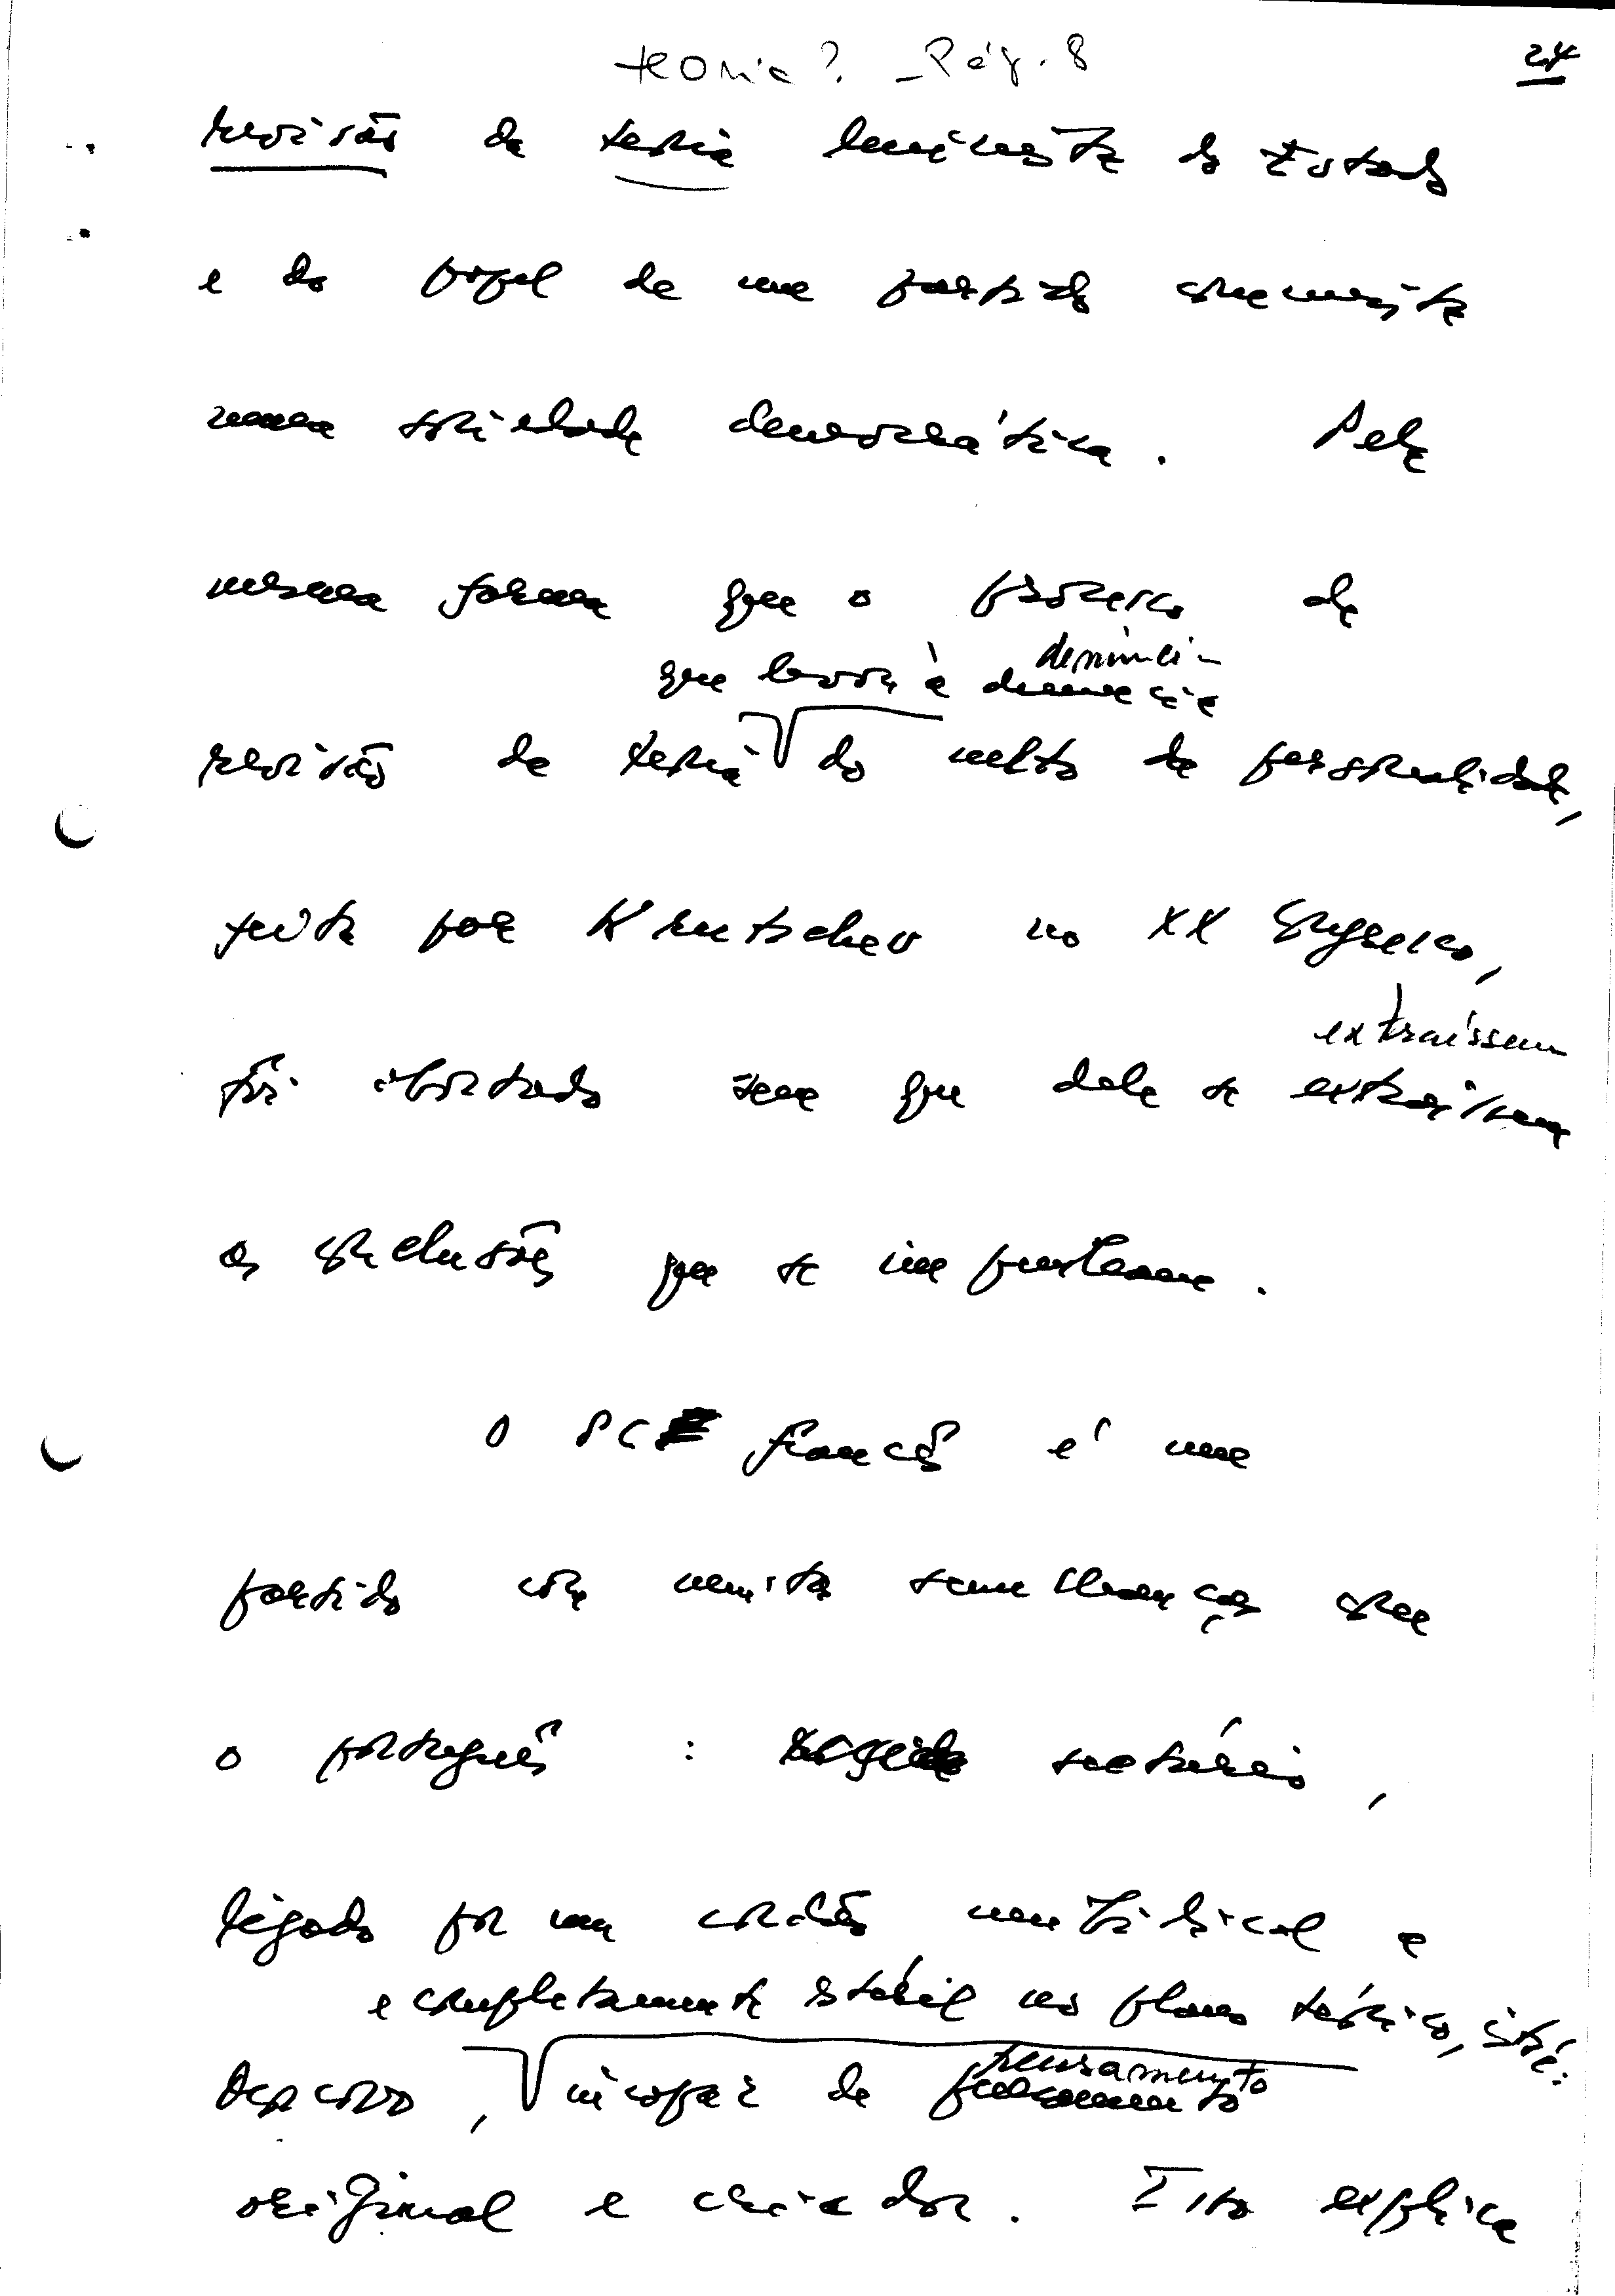 teoria? - Pág. 8
24
revisão da teoria leninista do Estado
e do papel de um partido comunista
numa sociedade democrática. Pela
mesma forma que o processo de
denúncia
que levou à denúncia
revisão da teoria do culto da personalidade,
feita por Krutschev no XX Congresso,
extraíssem
foi abortado sem que dele se extraíssem
as conclusões que se impunham.
O PC francês é um
partido com muitas semelhanças com
o português: sectário,
ligado por um cordão umbilical a
e completamente estéril no plano teórico, isto é:
pensamento
Moscovo, incapaz de pensamento
original e criador. Isto explica